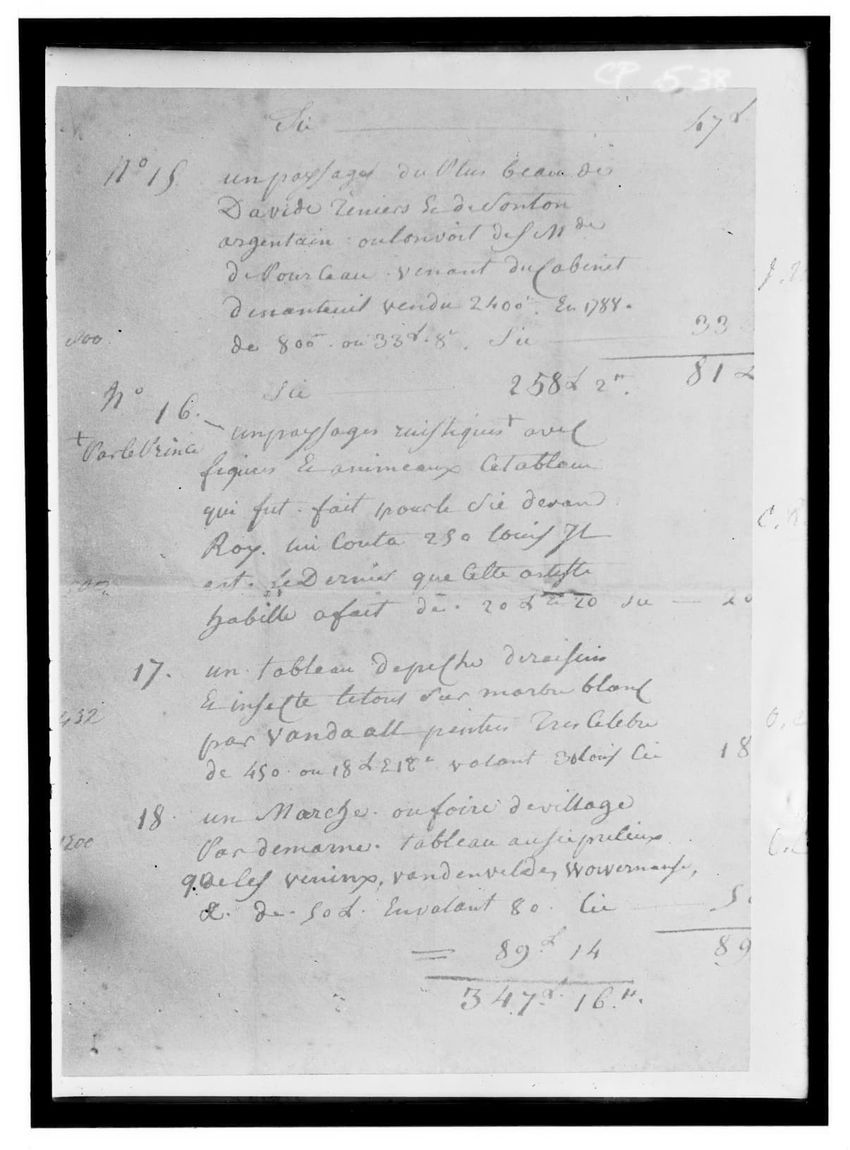 CP 538
Sie 47
N° 15 un paysages du Plus beau de
Davide Teniers & de Sonton
argentain ou lonvoit de
de venant du Cabinet
denanteuil vendu 2400 En 1788.
800 de 800 ou 33 8 Sie 33
Sie 258 2 81
N° 16. un paysages ruistiques + avec
+ Par le Prince
figures & animeaux Ce tableau
qui fut fait pour le
Roy. lui Couta 250 louis Jl
est. Le Dernier que Cette artiste
habille a fait de 20 20 Sie 20
17. un tableau de peche de raisins
& insecte letous Sur marbre blanc
432 par Vandaall peintre Tres Celebre
de 450 ou 18 & 18 valant 30 louis Cie 18
18 un Marche ou foire de village
1200 Par demarne. tableau ausi pretieux
que les veninx, vandenvelde, Wowermanse,
& de 50 En valant 80 Cie 50
= 89 14 89
347 16